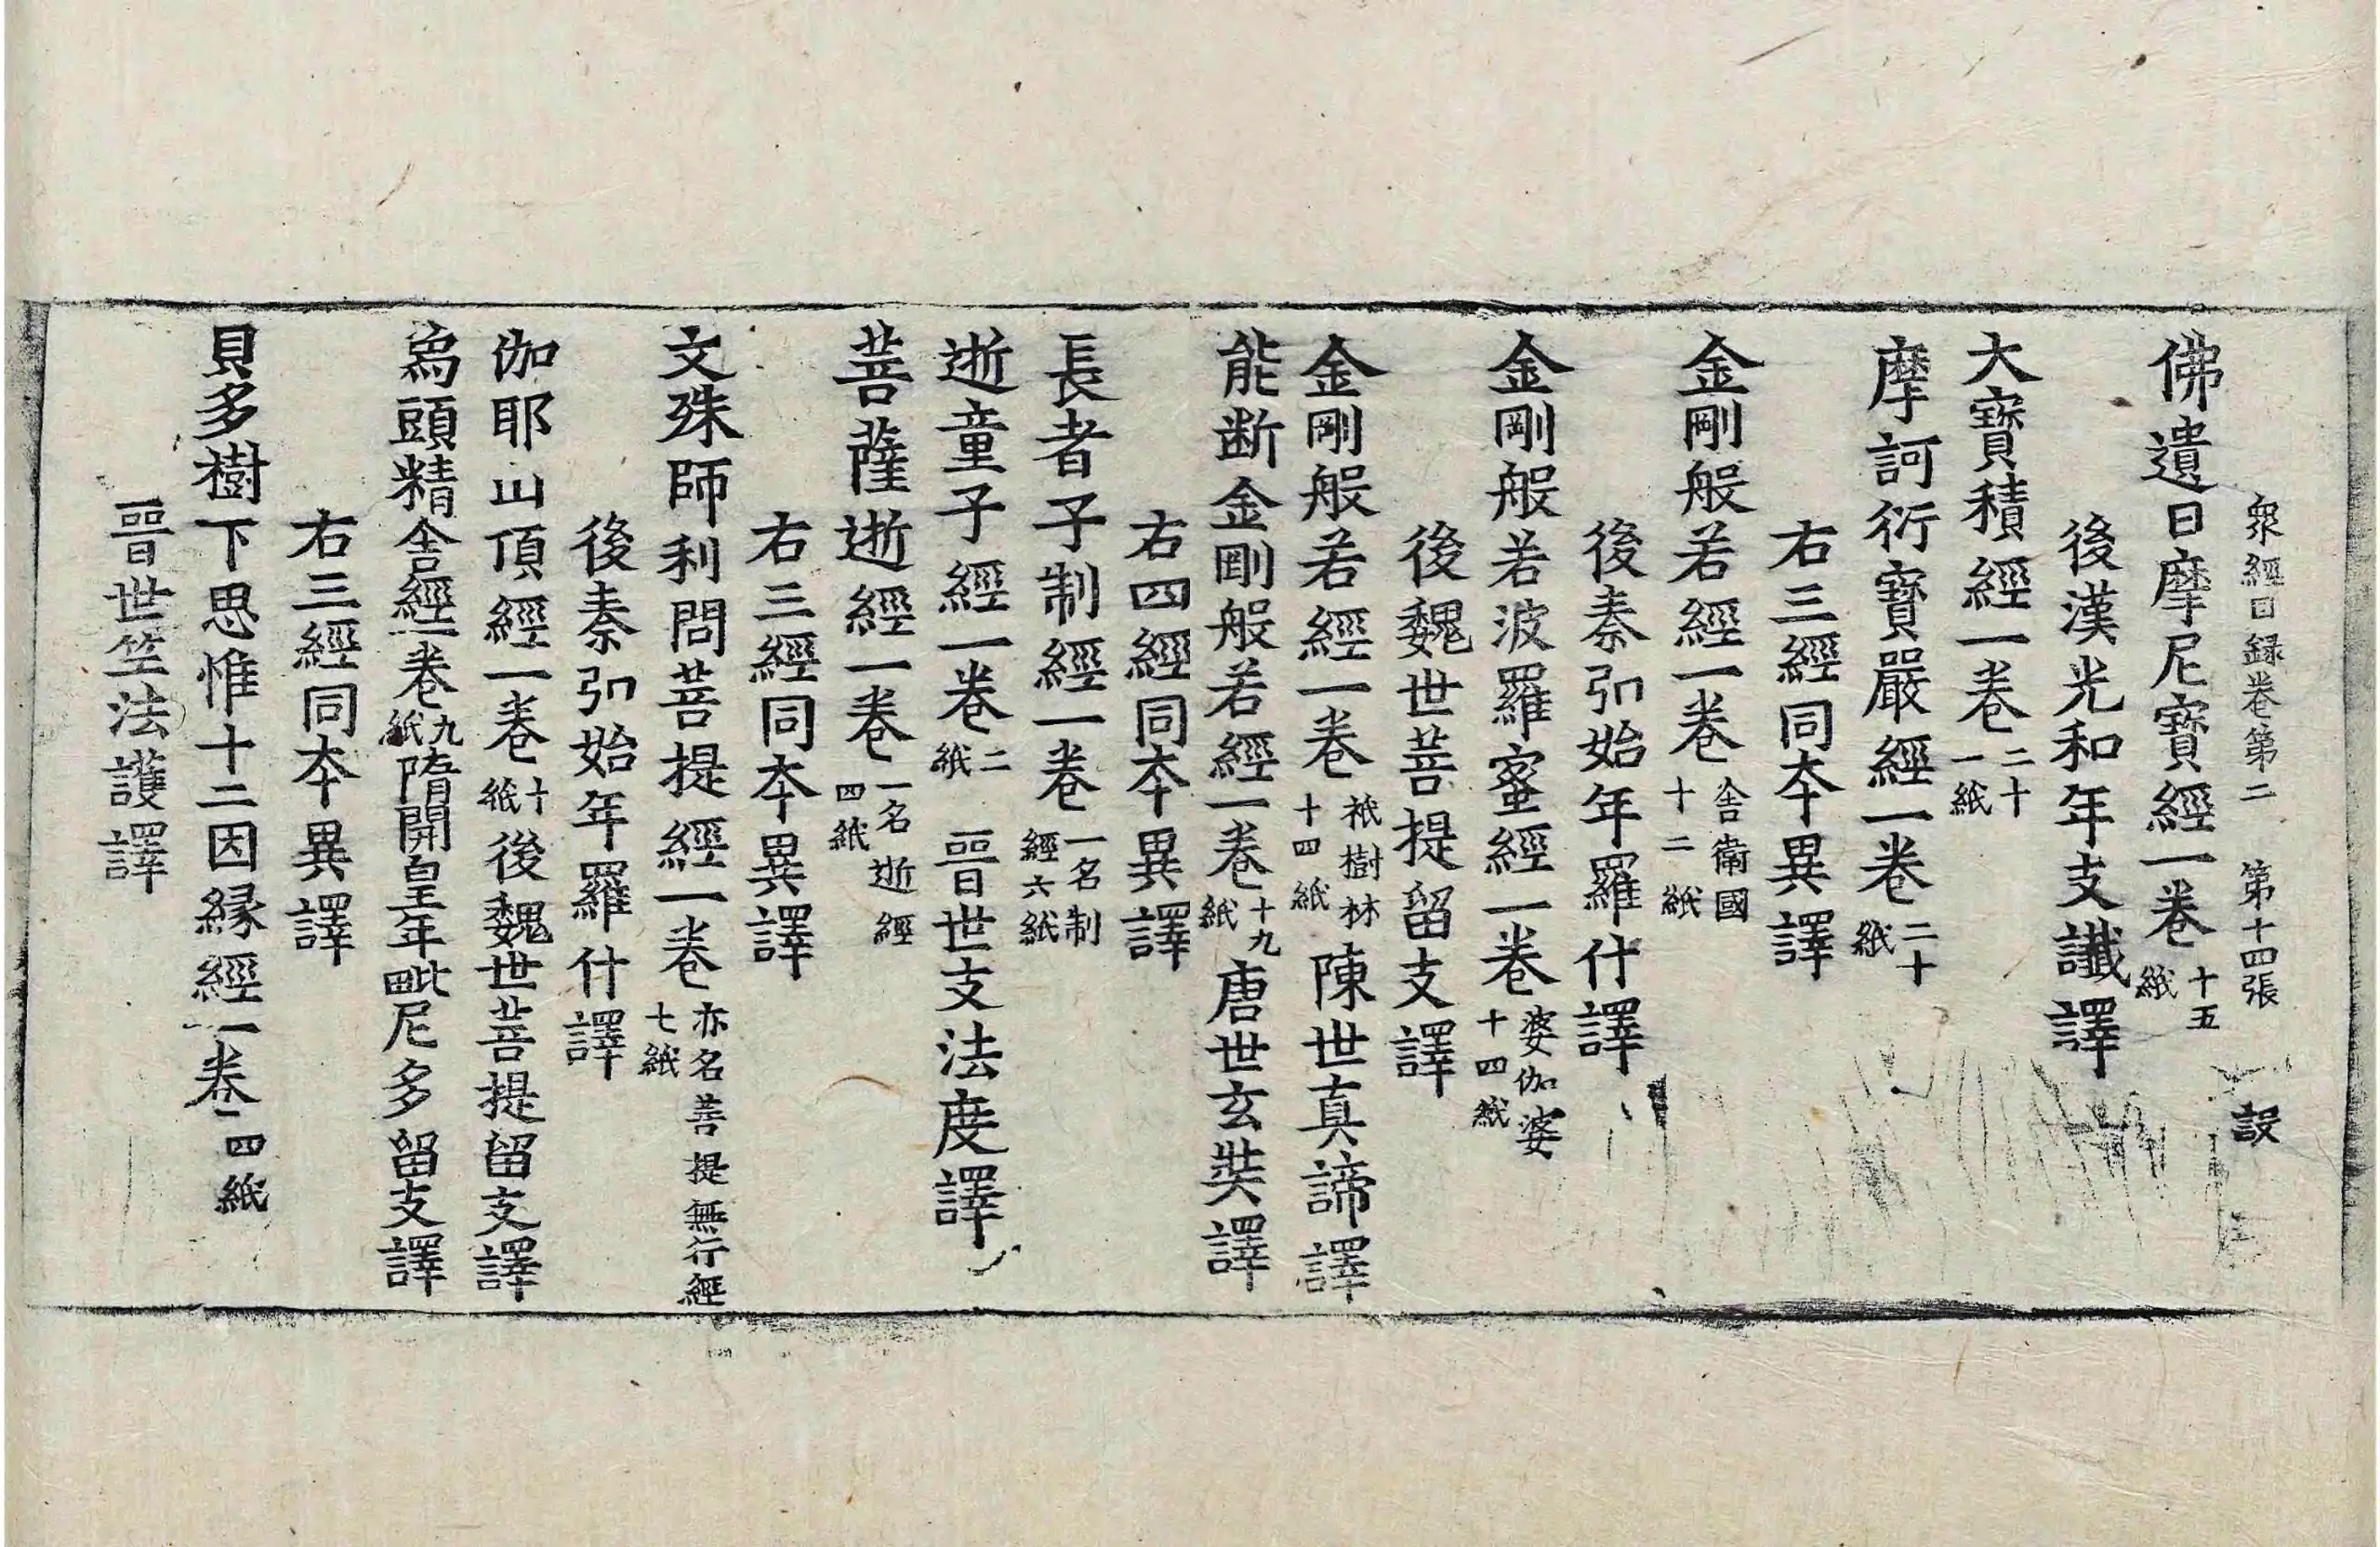 衆經目録卷第二 第十四張 設
佛遺日摩尼寶經一卷 十五紙
後漢光和年支讖譯
大寶積經一卷 二十一紙
摩訶衍寶嚴經一卷 二十紙
右三經同本異譯
金剛般若經一卷 舍衛國十二紙
後秦弘始年羅什譯
金剛般若波羅蜜經一卷 婆伽婆十四紙
後魏世菩提留支譯
金剛般若經一卷 祇樹林十四紙 陳世真諦譯
能斷金剛般若經一卷 十九紙 唐世玄奘譯
右四經同本異譯
長者子制經一卷 一名制經六紙
逝童子經一卷 二紙 晉世支法度譯
菩薩逝經一卷 一名逝經四紙
右三經同本異譯
文殊師利問菩提經一卷 亦名菩提無行經七紙
後秦弘始年羅什譯
伽耶山頂經一卷 十紙 後魏世菩提留支譯
烏頭精舍經一卷 九紙 隋開皇年毗尼多留支譯
右三經同本異譯
貝多樹下思惟十二因緣經一卷 四紙
晉世竺法護譯